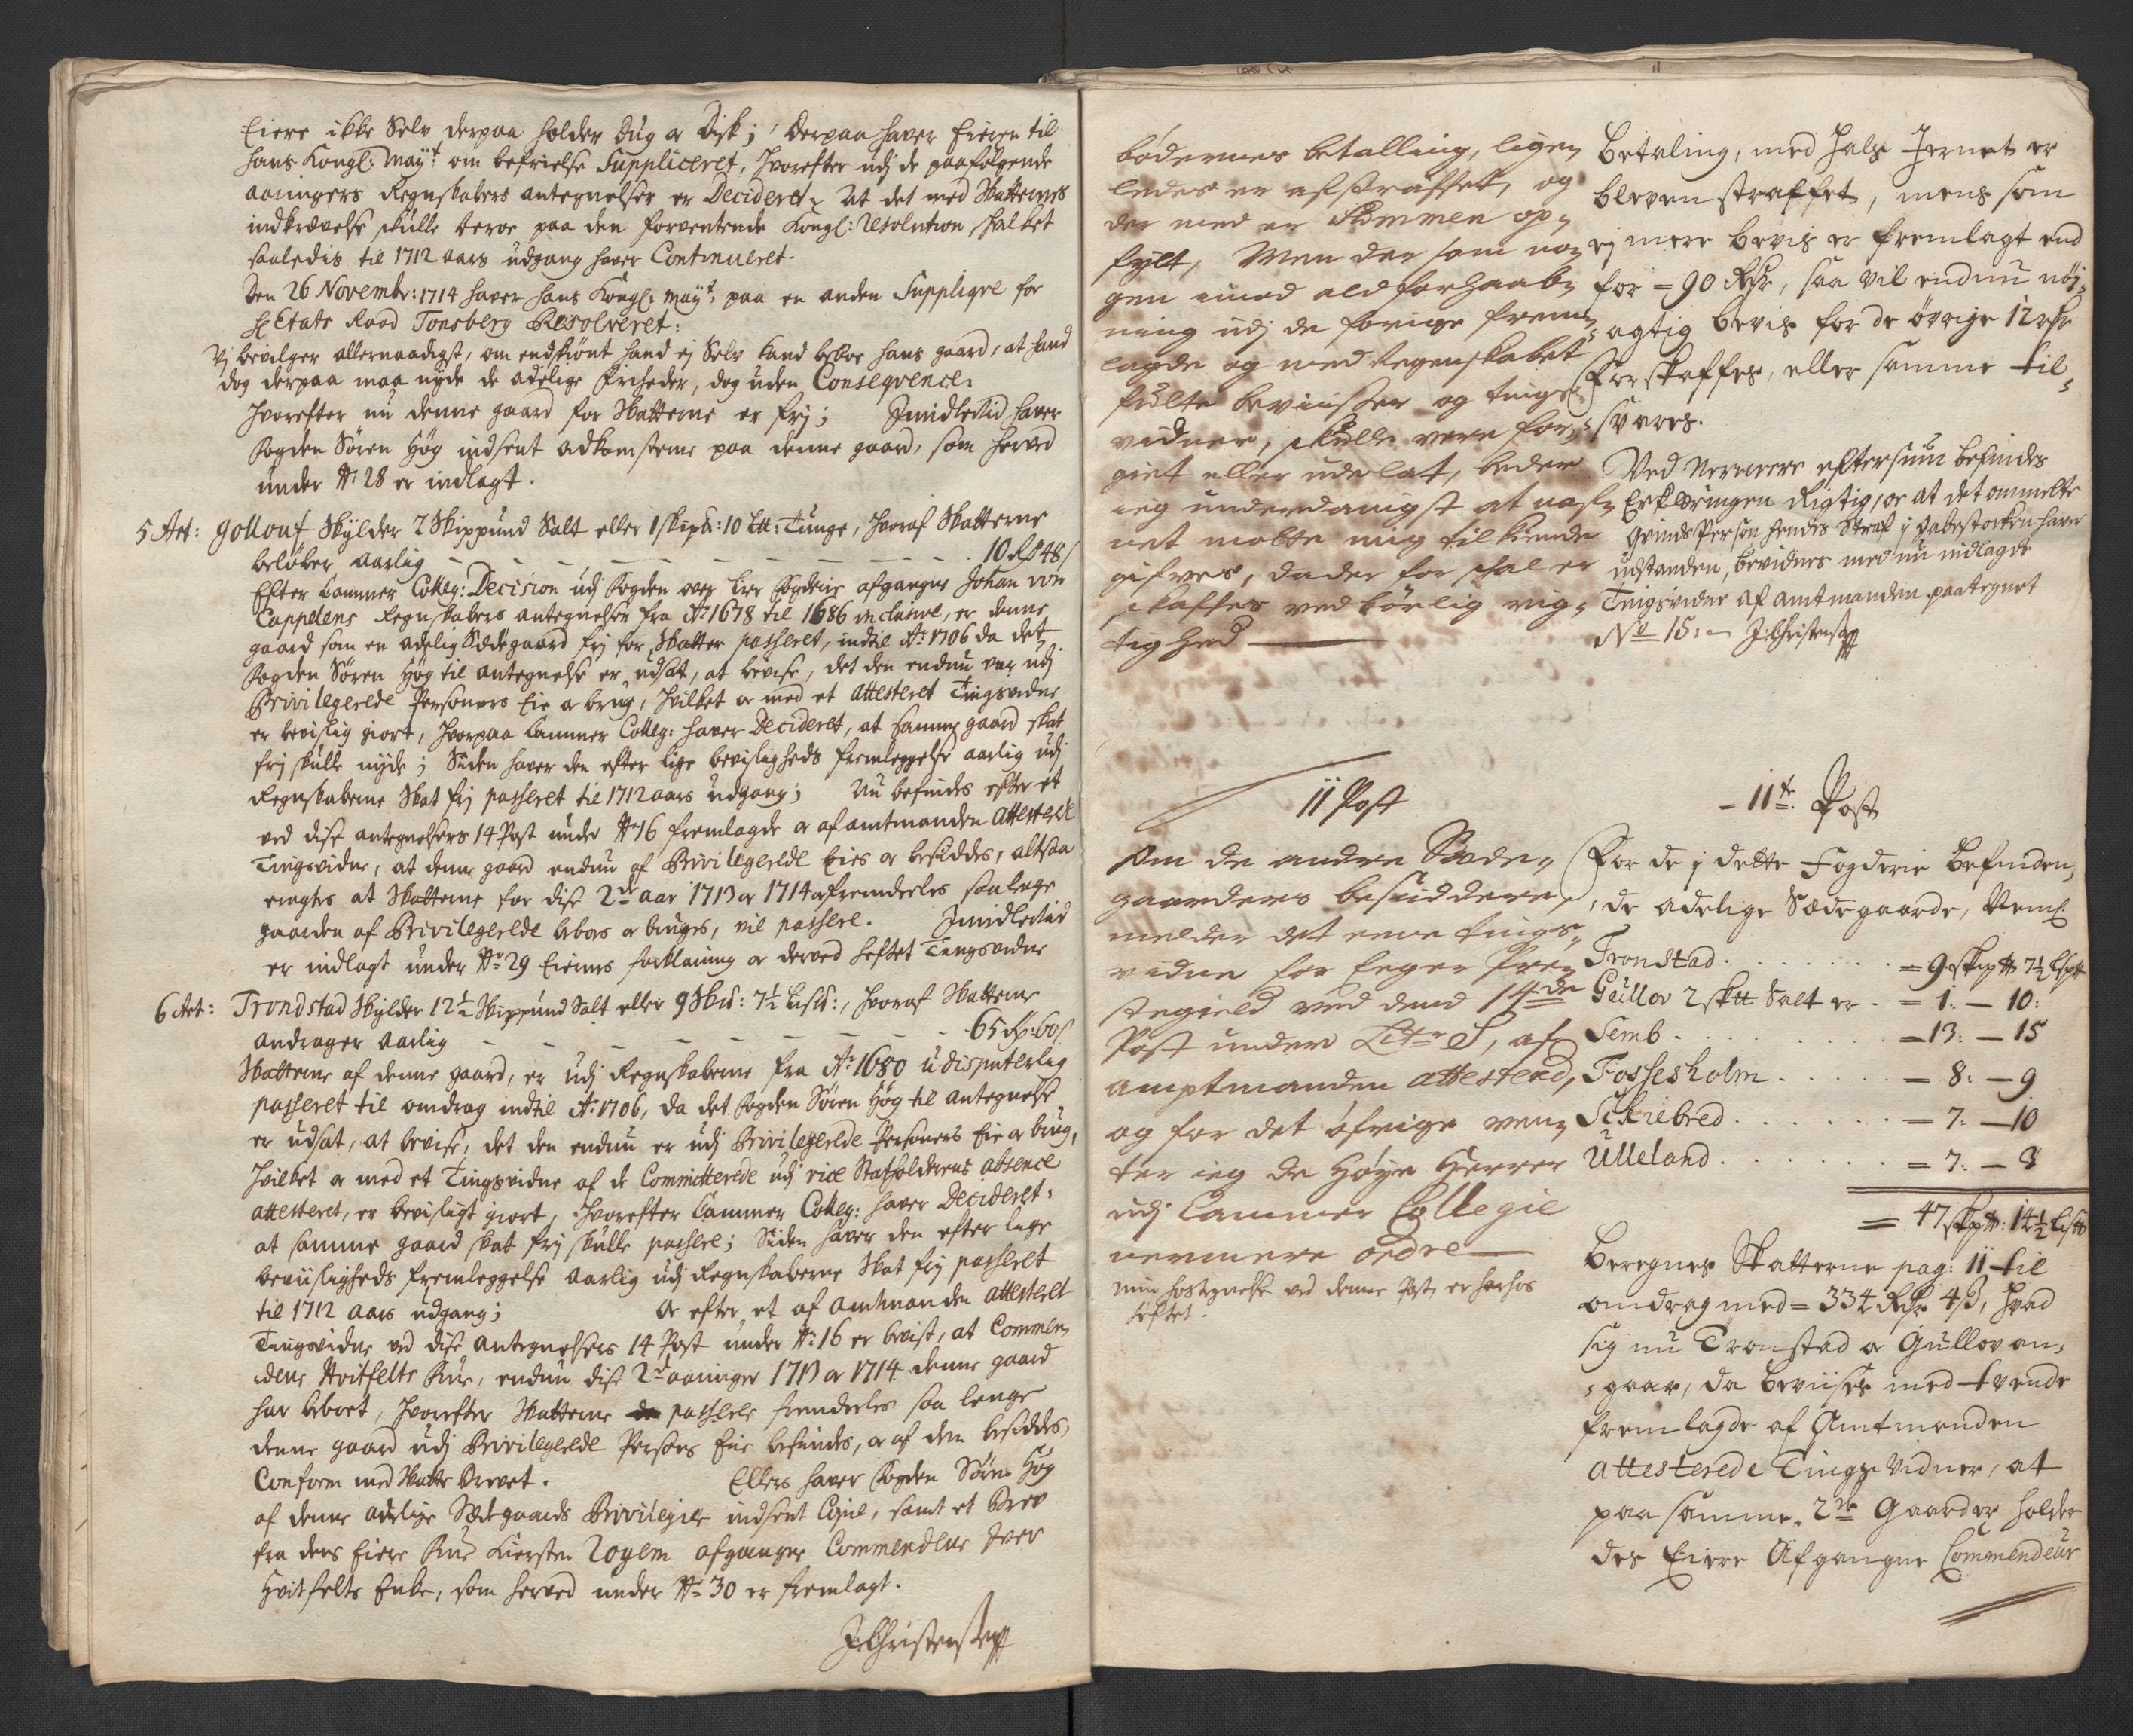 Eiere ikke Selv derpaa holder Dug og Disk; Derpaa haver Eieren til
hans Kongl: May:t om befrielse Suppliceret, hvorefter udj de paafølgende
aaringers Regnskabers antegnelser er Decideret, at det med Skatternes
indkrævelse skulle beroe paa den forventende Kongl: Resolution hvilket
saaledis til 1712 aars udgang haver Continueret.
Den 26 Novembr: 1714 haver hans Kongl: May:t paa en anden Suppliqve for
Hr Etats Raad Tonsberg Resolveret:
Vj bevilger allernaadigst, om endskiønt hand ej Selv kand beboe hans gaard, at hand
dog derpaa maa nyde de adelige friheder, dog uden Conseqvence.
hvorefter nu denne gaard for Skatterne er frj; Imidlertid haver
Fogden Søren Høg indsent adkomsterne paa denne gaard, som herved
under No 28 er indlagt.
5 Art: Gollouf Skylder 2 Skippund Salt eller 1 skip: 10 Lt: Tunge, hvoraf Skatterne
beløber aarlig - - - 10 Rd 48 s
Efter Cammer Colleg: Decision udj Fogden over Lier Fogderie afgangne Johan von
Cappelens Regnskabers antegnelser fra Ao 1678 til 1686 inclusive, er denne
gaard som en adelig Sædegaard frj for Skatter passeret, indtil Ao 1706 da det
Fogden Søren Høg til antegnelse er udsat, at bevise, det den endnu var udj
Privilegerede Personers Eie og brug, hvilket og med et attesteret Tingsvidne
er bevislig giort, hvorpaa Cammer Colleg: haver Decideret, at samme gaard skat
frj skulle nyde; Siden haver den efter lige bevisligheds fremleggelse aarlig udj
Regnskaberne Skat frj passeret til 1712 aars udgang; Nu befindes efter et
ved disse antegnelsers 14 Post under No 16 fremlagde og af amtmanden attesterede
Tingsvidne, at denne gaard endnu af Privilegerede Eies og besiddes, altsaa
eragtes at Skatterne for disse 2de aar 1713 og 1714 og fremdeeles saalenge
gaarden af Privilegerede beboes og bruges, vil passere. Imidlertid
er indlagt under No 29 Eiernes forklaring og derved heftet Tingsvidne
6 Art: Trondstad Skylder 12½ Skippund Salt eller 9 Skid: 7½ Lisd:, hvoraf Skatterne
andrager aarlig - - - 65 Rd: 60 s
Skatterne af denne gaard, er udj Regnskaberne fra Ao 1680 udisputerlig
passeret til omdrag indtil Ao: 1706, da det Fogden Søren Høg til antegnelse
er udsat, at bevise, det den endnu er udj Privilegerede Personers Eie og brug,
hvilket og med et Tingsvidne af de Committerede udj vice Statholderens absence
attesteret, er bevisligt giort, hvorefter Cammer Colleg: haver Decideret,
at samme gaard skat frj skulle passere; Siden haver den efter lige
beviisligheds fremleggelse aarlig udj Regnskaberne Skat frj passeret
til 1712 aars udgang; Og efter et af amtmanden attesteret
Tingsvidne ved disse antegnelsers 14 Post under No: 16 er bevist, at Commen,
deur Hvitfelts Frue, endnu disse 2de aaringer 1713 og 1714 denne gaard
har beboet, hvorefter Skatterne passere fremdeeles saa lenge
denne gaard udj Privilegerede Persons Eie befindes, og af dem besiddes,
Conform med Skatte brevet. Ellers haver Fogden Søren Høg
af denne adelige Sædegaards Privilegier indsent Copie, samt et Brev
fra dens Eiere Frue Kiersten Røyem afgangne Commendeur Iver
Hvitfelts Enke, som herved under No 30 er fremlagt.
J. Christensen
bødernes betalling, ligen
ledes er afstraffet, og
der med er Summen op,
fylt, Men der som no,
gen imod ald forhaab,
ning udj de forige frem,
lagde og med regenskabet
fulte beviisser og tings
vidner, skulle vere for,
giet eller udelat, beder
ieg underdanigst at nas,
net motte mig tilkiende
gifves, da der for skal er
skaffes ved børlig rig,
tighed
11 Post
Om de andre Sæde,
gaarders besiddere,
melder det eene tings,
vidne for Eger Pre,
stegield ved dend 14de
Post under Litr S, af
amptmanden attesterd,
og for det øfrige ven,
ter ieg de Høye Herrer
udj Cammer Collegie
nermere ordre
min hostegnelse ved denne Post, er herhos
heftet.
Betaling, med Hals Jernet er
bleven straffet, mens som
ej mere bevis er fremlagt end
for = 90 Rdr, saa vil endnu nøj,
agtig bevis for de øvrige 12 rdr
forskaffes, eller samme til,
svares.
Ved Nermere eftersiun befindes
Erklæringen Rigtig, og at det ommelte
Qvinds Person hendes Straf j Gabestocken haver
udstanden, bevidnes med nu indlagde
Tingsvidne af amtmanden paategnet
No 15: J. Christensen
- 11te Post
For de j dette Fogderie Befinden,
de adelige Sædegaarde, Neml:
Tronstad . . . = 9 skpd 7½ Lispd
Gullov 2 skd Salt er . = 1: - 10:
Semb . . . = 13: - 15
Fossesholm . . . = 8: - 9
Schiebred . . . = 7: - 10
Ulleland . . . = 7: - 3
= 47 skpd: 14½ Lisd
Beregnes Skatterne pag: 11 til
omdrag med = 334 Rdr 4 s, hvad
sig nu Tronstad og Gullov an,
gaar, da beviises med tvende
fremlagde af Amtmanden
attesterede Tings Vidner, at
paa samme 2de Gaarder holder
des Eiere Afgangne Commendeur